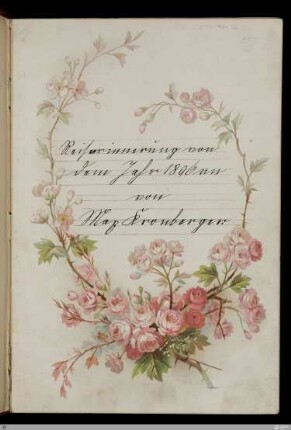 Reiserinnerung von
dem Jahr 1890 an
von
Max Kronberger